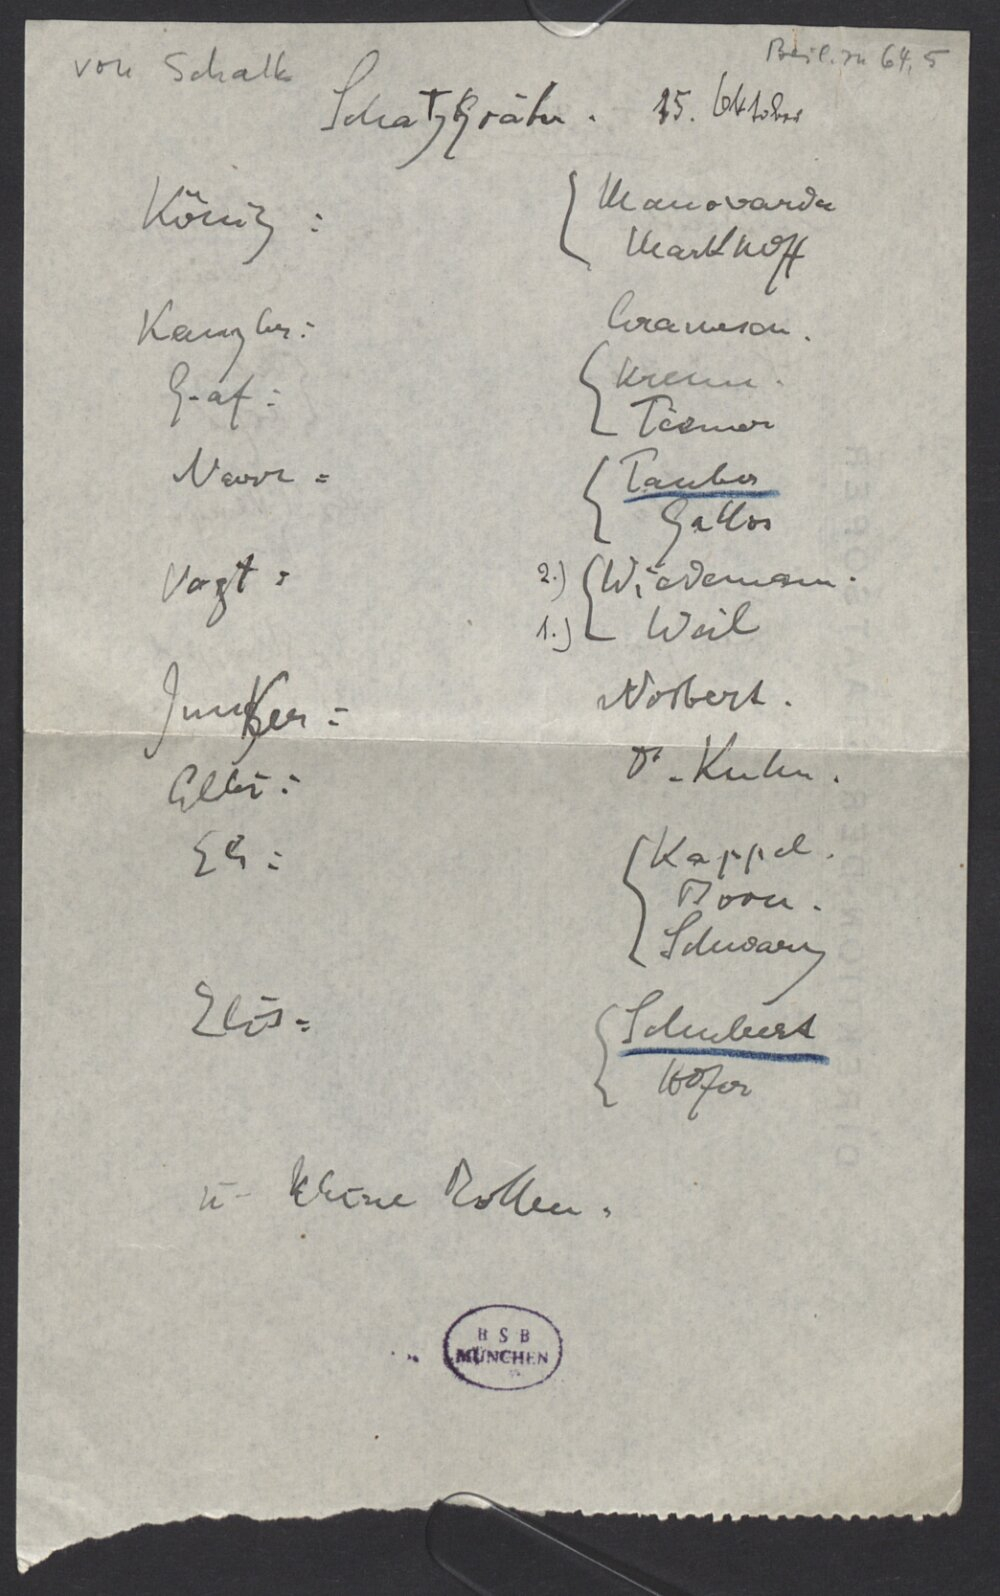 von Schalk
Beil. zu 64, 5
Schatzgräber. 15. Oktober
König : Manowarda
Markhoff
Kanzler :
Graf : Krenn.
Tismer
Narr = Tauber
Gallos
Vogt : 2.) Wiedemann.
1.) Weil
Junker : Norbert.
Dr. Kuhn.
Els : Kappel.
Born.
Schwarz
Elis = Schubert
Hofer
u. kleine Rollen.
BSB
MÜNCHEN